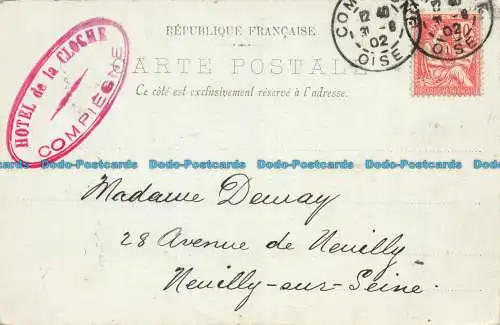 RÉPUBLIQUE FRANÇAISE
CARTE POSTALE
Ce côté est exclusivement réservé à l'adresse.
HOTEL de la CLOCHE
COMPIÈGNE
12 40
31 -8
02
OISE
OISE
Madame Demay
28 Avenue de Neuilly
Neuilly-sur-Seine.
Dodo-Postcards Dodo-Postcards Dodo-Postcards Dodo-Postcards